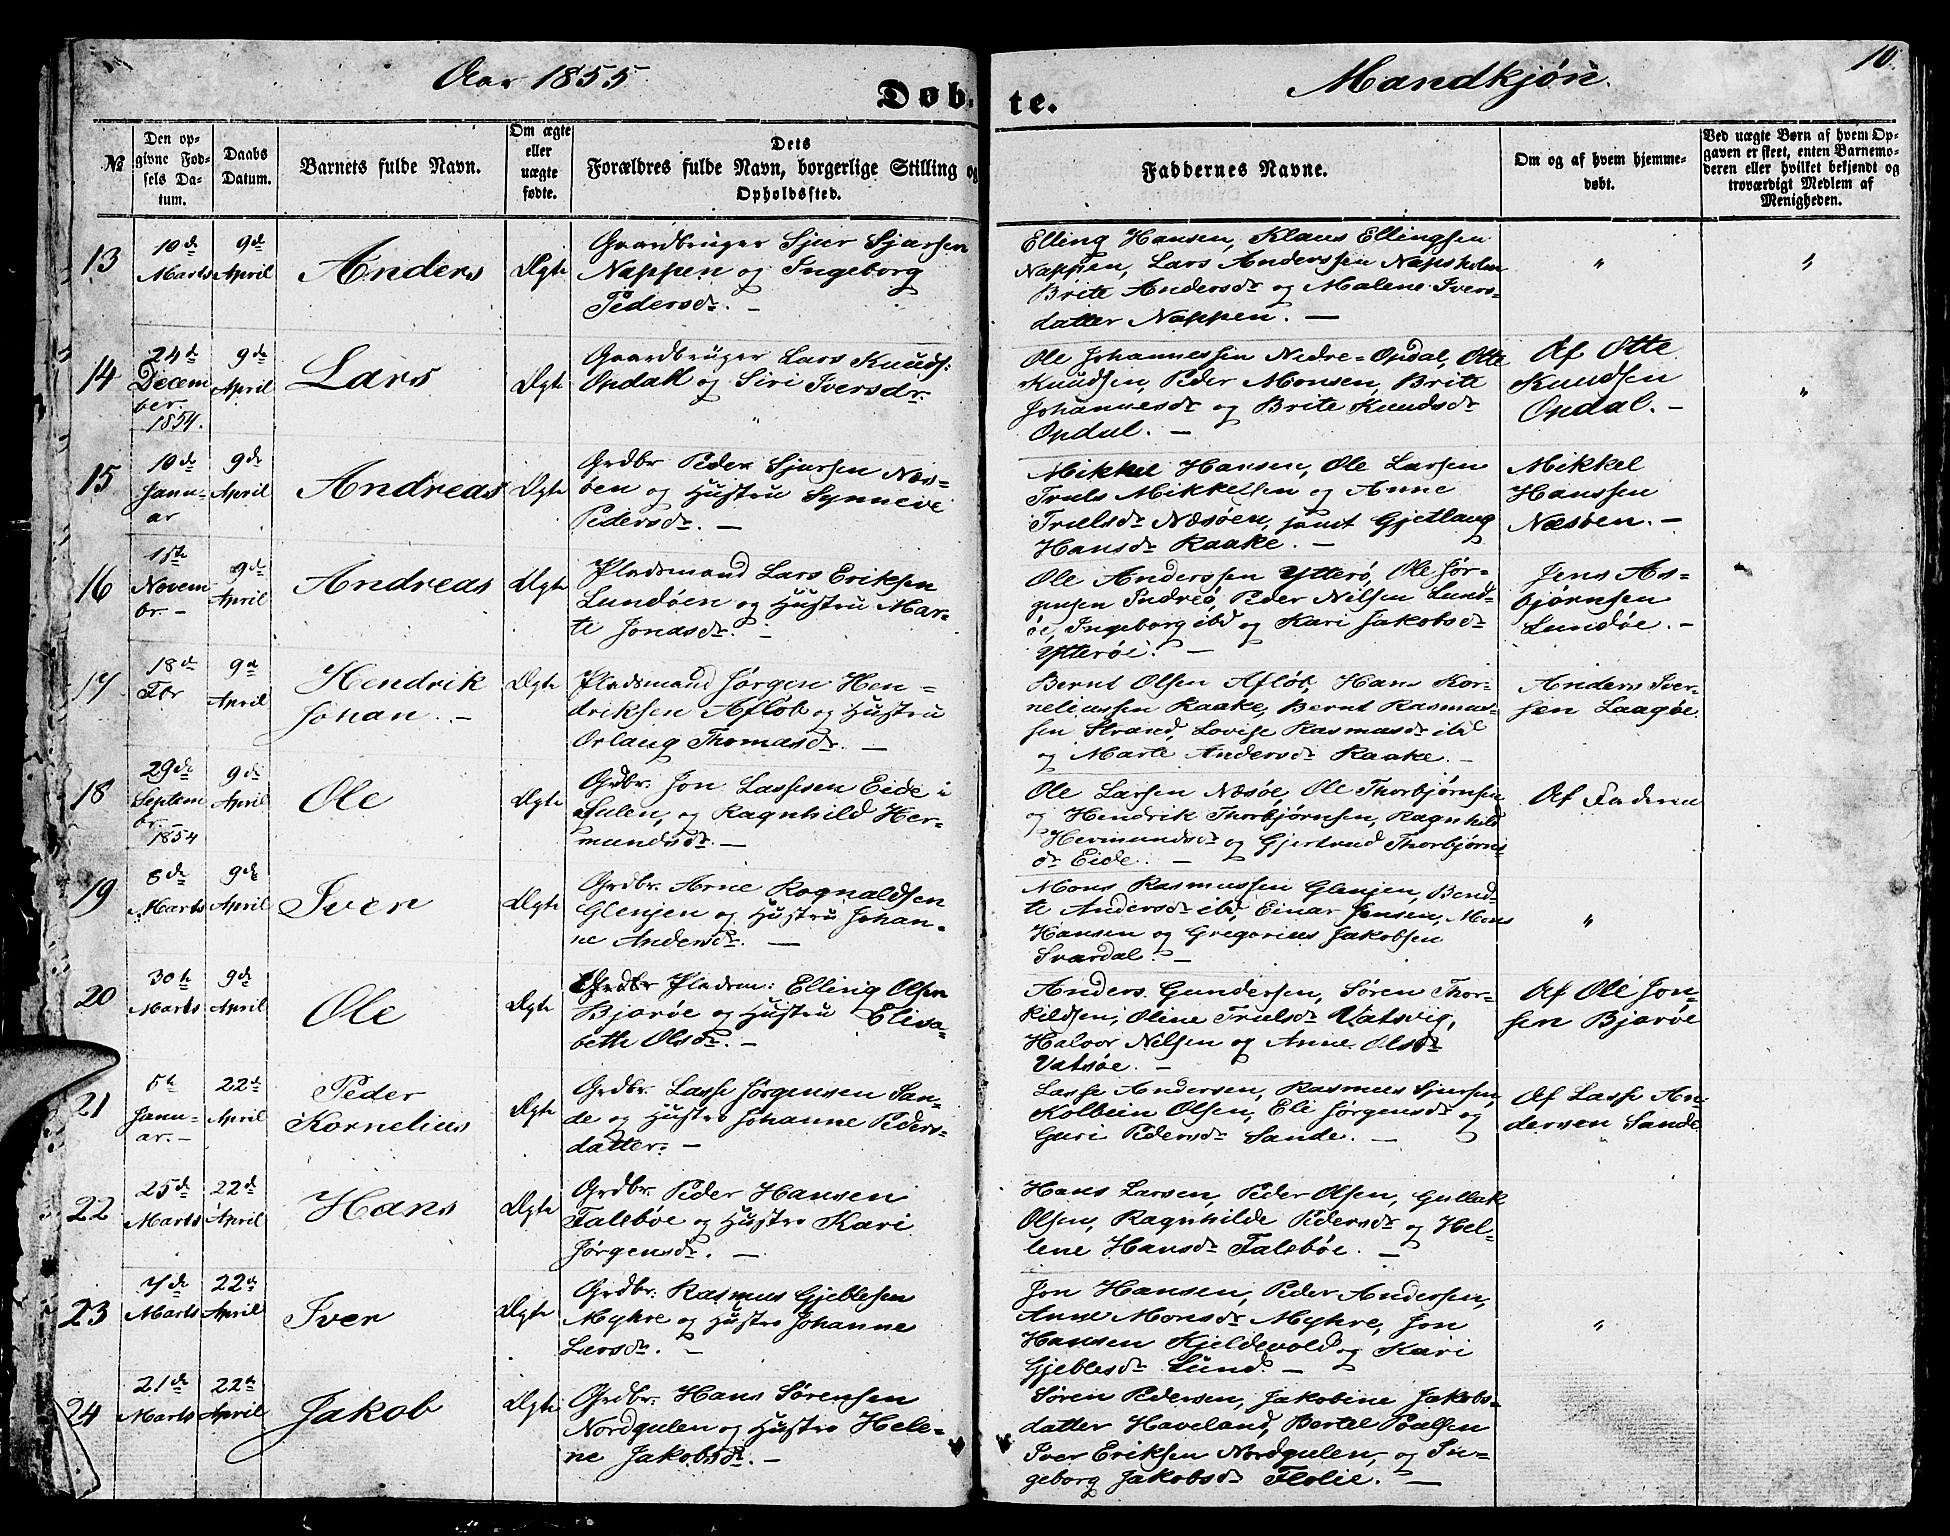 Aar 1855
Døb-
te.
Mandkjøn.
10.
№
Den op-
givne Fød-
sels Da-
tum.
Daabs
Datum.
Barnets fulde Navn.
Om ægte
eller
uægte
fødte.
Dets
Forældres fulde Navn, borgerlige Stilling og
Opholdssted.
Faddernes Navne.
Om og af hvem hjemme-
døbt.
Ved uægte Børn af hvem Op-
gaven er skeet, enten Barnemo-
deren eller hvilket bekjendt og
troværdigt Medlem af
Menigheden.
13
10de
Marts
9de
April
Anders
Ægte
Gaardbruger Sjur Sjursen
Nappen og Ingeborg
Pedersdr. —
Elling Hansen, Klaus Ellingsen
Nappen, Lars Anderssen Napsholm
Brite Andersdr og Malene Ivers-
datter Nappen. —
"
"
14
24de
Decem
ber.
1854.
9de
April
Lars
Ægte
Gaardbruger Lars Knuds:
Opdal og Siri Iversdr.
Ole Johannessen Nedre-Opdal, Otte
Knudsen, Peder Monsen, Brite
Johannesdr og Brite Knudsdr
Opdal. —
Af Otte
Knudsen
Opdal. —
"
15
10de
Janu-
ar
9de
April
Andreas
Ægte
Grdbr Peder Sjursen Næs-
øen og Hustru Synneve
Pedersdr. —
Mikkel Hansen, Ole Larsen
Truls Mikkelsen og Anne
Trulsdr Næsøen, samt Gjetlaug
Hansdr Raake. —
Mikkel
Hanssen
Næsøen. —
16
15de
Novem
br. —
9de
April
Andreas
Ægte
Pladsmand Lars Eriksen
Lundøen og Hustru Mar-
te Jonasdr. —
Ole Anderssen Ytterø, Ole Jør-
gensen Indreø, Peder Nilsen Lund-
øe, Ingeborg ibd og Kari Jakobsdr
Ytterøe. —
Jens As-
bjørnsen
Lundøe. —
17
18de
Fbr
9de
April
Hendrik
Johan. —
Ægte
Pladsmand Jørgen Hen-
driksen Afløb og Hustru
Orlaug Thomasdr. —
Bernt Olsen Afløb, Hans Kor-
neliussen Raake, Bernt Rasmus-
sen Strand, Lovise Rasmusdr ibd
og Marte Andersdr Raake. —
Anders Iver-
sen Laagøe.
18
29de
Septem
br. —
1854
9de
April
Ole
Ægte
Grdbr. Jon Lassesen Eide i
Sulen, og Ragnhild Her-
mundsdr. —
Ole Larsen Næsøe, Ole Thorbjørnsen
og Hendrik Thorbjørnsen, Ragnhild
Hermundsdr og Gjertrud Thorbjørns-
dr Eide. —
Af Faderen
19
8de
Marts
9de
April
Iver
Ægte
Grdbr. Arne Rognaldsen
Glenjen og Hustru Johan-
ne Andersdr. —
Mons Rasmussen Glenjen, Bend-
te Andersdr ibd, Einar Jensen, Mons
Hansen og Gregorius Jakobsen
Svardal. —
"
20
30te
Marts
9de
April
Ole
Ægte
Grdbr Pladsm: Elling Olsen
Bjarøe og Hustru Elisa-
beth Olsdr. —
Anders Gundersen, Søren Thor-
kildsen, Oline Trulsdr Vatsvig,
Halvor Nilsen og Anne Olsdr
Vatsøe. —
Af Ole Jon-
sen Bjarøe
21
5te
Janu-
ar. —
22de
April
Peder
Kornelius
Ægte
Grdbr. Lasse Jørgensen San-
de og Hustro Johanne Peders-
datter. —
Lasse Andersen, Rasmus Sjursen,
Kolbein Olsen, Eli Jørgensdr og
Guri Pedersdr Sande. —
Af Lasse An-
dersen Sande
22
25de
Marts
22de
April
Hans
Ægte
Grdbr. Peder Hansen
Falsbøe og Hustro Kari
Jørgensdr. —
Hans Larsen, Peder Olsen, Gullak
Olsen, Ragnhilde Pedersdr og Hel-
lene Hansdr Falsbøe. —
23
7de
Marts
22de
April
Iver
Ægte
Grdbr: Rasmus Gjeblesen
Myhre og Hustro Johanne
Larsdr. —
Jon Hansen, Peder Andersen,
Anne Monsdr Myhre, Jon
Hansen Kjeldevold og Kari
Gjeblesdr Lund —
"
24
21de
Marts
22de
April
Jakob
Ægte
Grdbr: Hans Sørensen
Nordgulen og Hustro Hele-
ne Jakobsdr. —
Søren Pedersen, Jakobine Jakobs-
datter Haveland, Bertel Poulsen
Iver Eriksen Nordgulen, og In-
geborg Jakobsdr Flolie. —